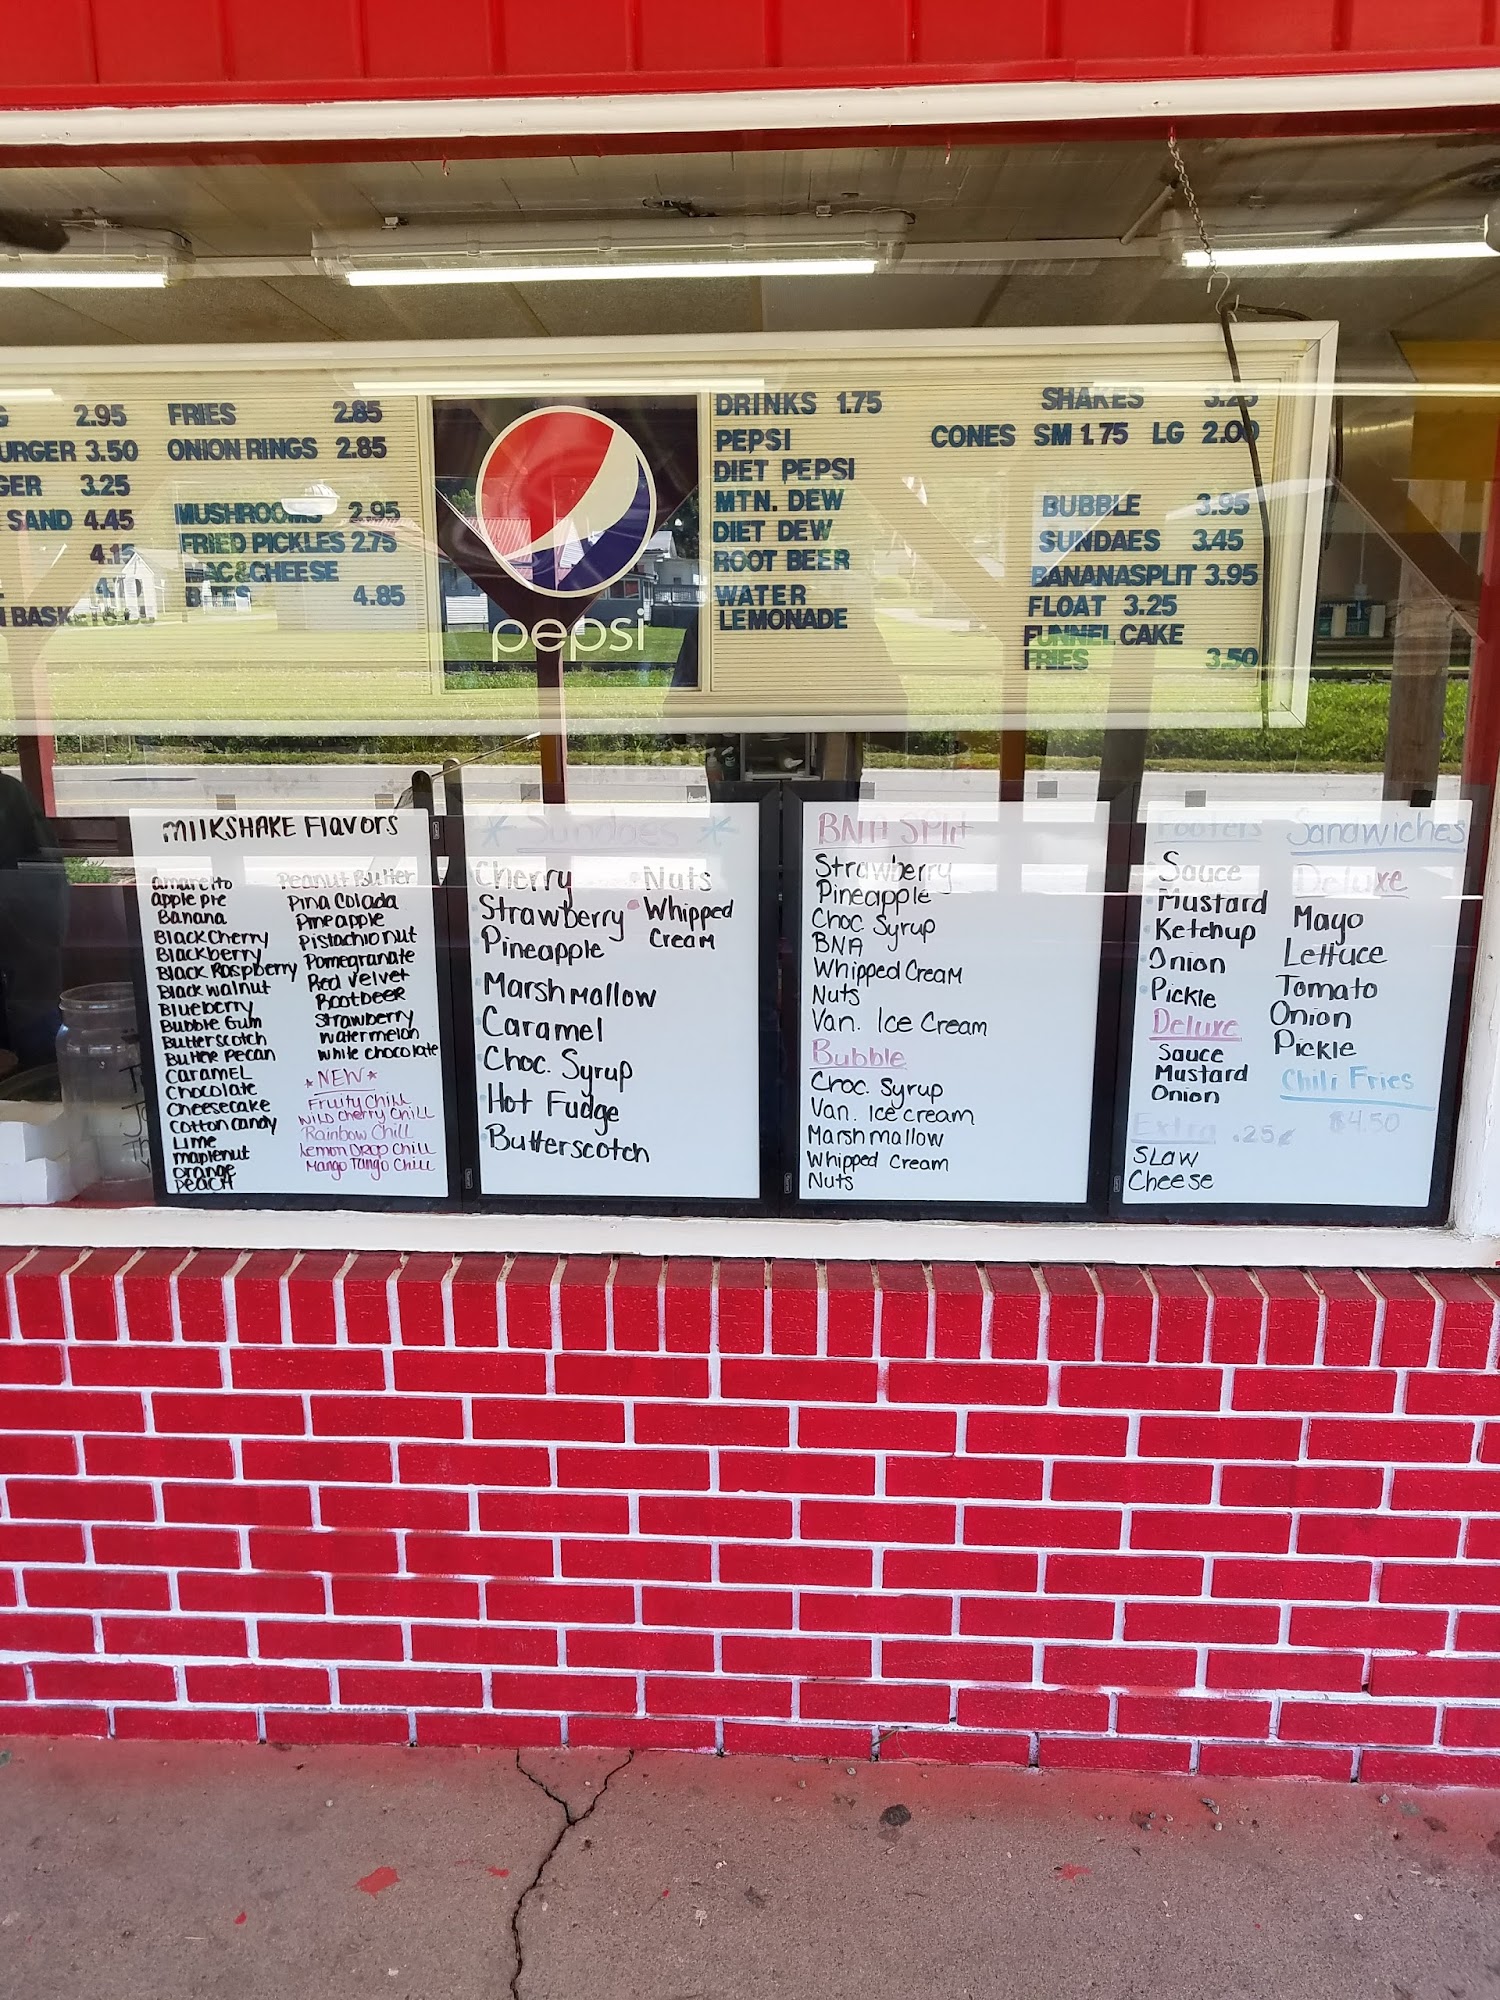 2.95
URGER 3.50
GER 3.25
SAND 4.45
4.15
BASKET
FRIES 2.85
ONION RINGS 2.85
MUSHROOMS 2.95
FRIED PICKLES 2.75
MAC&CHEESE
BITES 4.85
pepsi
DRINKS 1.75
PEPSI
DIET PEPSI
MTN. DEW
DIET DEW
ROOT BEER
WATER
LEMONADE
SHAKES 3.25
CONES SM 1.75 LG 2.00
BUBBLE 3.95
SUNDAES 3.45
BANANASPLIT 3.95
FLOAT 3.25
FUNNEL CAKE
FRIES 3.50
MILKSHAKE Flavors
amaretto
apple pie
Banana
Black Cherry
Blackberry
Black Raspberry
Black walnut
Blueberry
Bubble Gum
Butterscotch
Butter Pecan
Caramel
Chocolate
Cheesecake
Cotton Candy
Lime
maplenut
orange
Peach
Peanut Butter
Pina Colada
Pineapple
Pistachio nut
Pomegranate
Red velvet
Rootbeer
Strawberry
Watermelon
White chocolate
*NEW*
Fruity Chill
Wild Cherry Chill
Rainbow Chill
Lemon Drop Chill
Mango Tango Chill
* Sundaes *
Cherry
Strawberry
Pineapple
Marshmallow
Caramel
Choc. Syrup
Hot Fudge
Butterscotch
Nuts
Whipped
Cream
BNA Split
Strawberry
Pineapple
Choc Syrup
BNA
Whipped Cream
Nuts
Van. Ice Cream
Bubble
Croc. Syrup
Van. Ice cream
Marshmallow
Whipped Cream
Nuts
Footers
Sauce
Mustard
Ketchup
Onion
Pickle
Deluxe
Sauce
Mustard
Onion
Extra .25¢
Slaw
Cheese
Sandwiches
Deluxe
Mayo
Lettuce
Tomato
Onion
Pickle
Chili Fries
$4.50